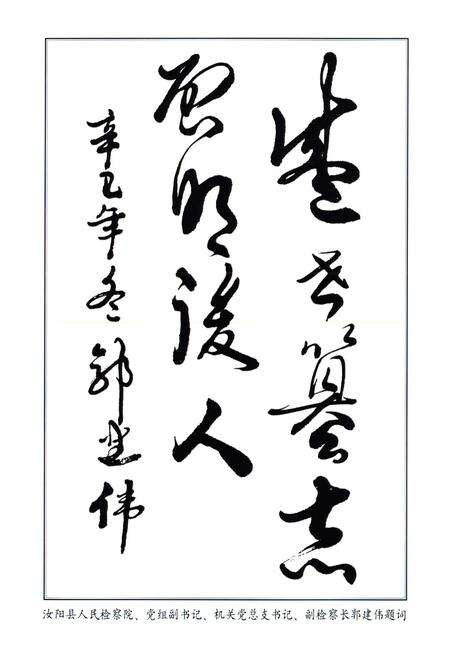 盛世纂志
启明后人
辛巳年冬郭建伟
汝阳县人民检察院、党组副书记、机关党总支书记、副检察长郭建伟题词